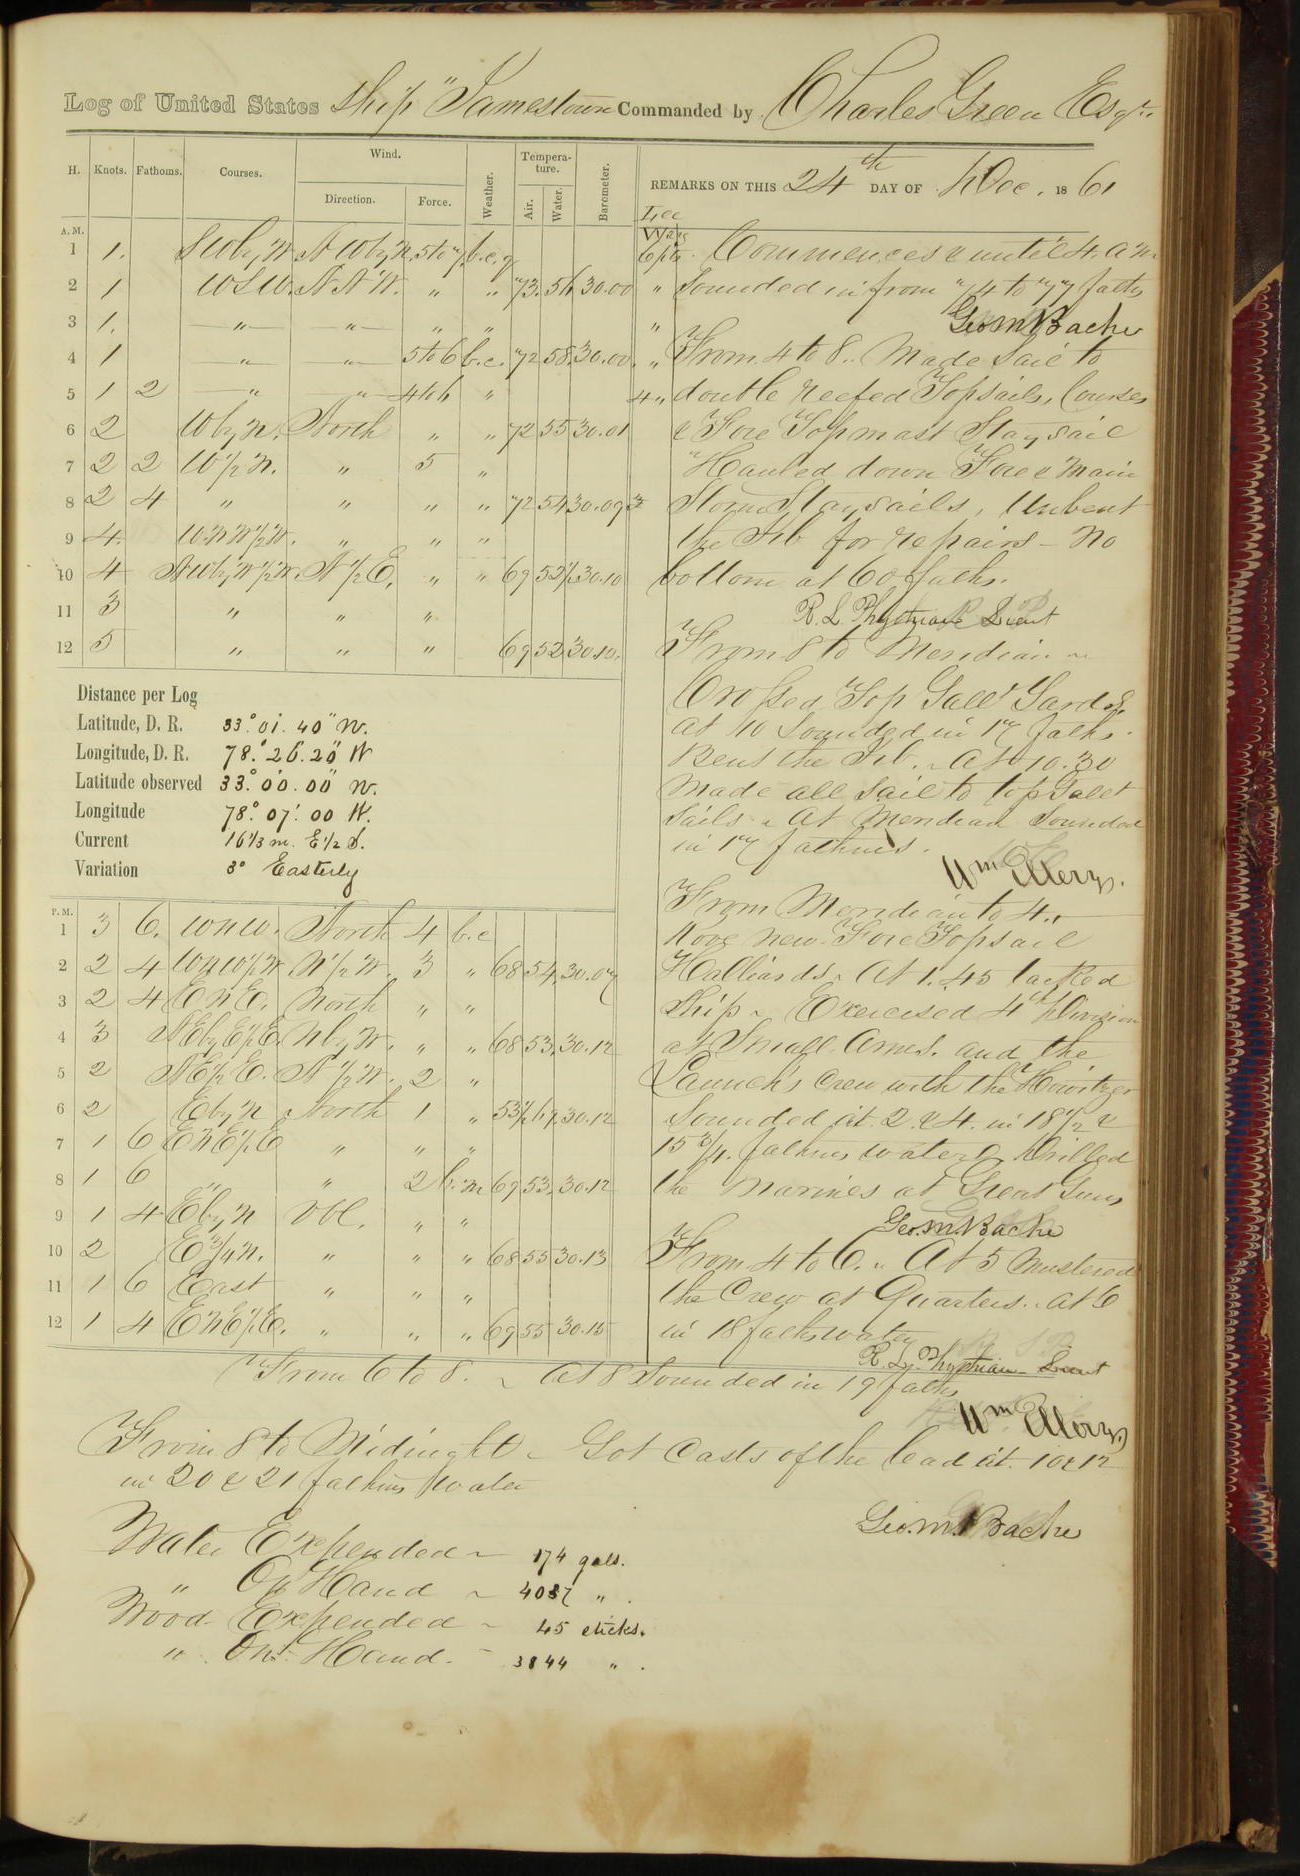 Log of United States Ship "Jamestown Commanded by Charles Green Esqr.
H. Knots. Fathoms. Courses. Wind. Direction. Force. Weather. Tempera-ture. Air. Water. Barometer. REMARKS ON THIS 24th DAY OF Dec. 1861
Lee
A.M.
1 1. SW by W. NW by N. 5 to 7 b.c.q 6 pts. Commences & until 4. a.m.
2 1 WSW. N N W. " " 73. 56 30.00 " Sounded in from 74 to 77 faths
Geo M Bache
3 1. " " " " "
4 1 " " 5 to 6 b.c. 72 58. 30.00. " From 4 to 8.. Made Sail to
5 1 2 " " 4 to 6 " 4 " double reefed Topsails, Courses
6 2 W by N. North " " 72 55 30.01 & Fore Topmast Staysail
7 2 2 W 1/2 N. " 5 " Hauled down Fore & Main
8 2 4 " " " " 72 54 30.09 Storm Staysails, Unbent
9 4. W.N.W 1/2 W. " " " the Jib for repairs - No
10 4 NW by W 1/2 W. N 1/2 E. " " 69 52 1/2 30.10 bottom at 60 faths.
R. L. Phythian Lieut
11 3 " " "
12 5 " " " 69 52 30.10. From 8 to Meridian ~
Crossed Top Gallt Yards.
At 10 Sounded in 17 faths.
Bent the Jib. ~ At 10.30
made all sail to top Gallt
Sails ~ At Meridian Sounded
in 17 fathms.
Wm Ellery.
Distance per Log
Latitude, D. R. 33° 01'. 40" N.
Longitude, D. R. 78.° 26'. 20" W
Latitude observed 33.° 00'. 00" N.
Longitude 78.° 07'. 00 W.
Current 16 1/3 m. E 1/2 S.
Variation 3° Easterly
P.M.
1 3 6. WNW. North 4 b.c
2 2 4 WNW 1/2 W N 1/2 W. 3 " 68 54 30.07
3 2 4 E N E. North " "
4 3 NE by E 1/2 E N by W. " " 68 53. 30.12
5 2 NE 1/2 E. N 1/2 W. 2 "
6 2 E by N North 1 " 53 1/2 67. 30.12
7 1 6 E N E 1/2 E " " "
8 1 6 " " 2 b.m 69 53. 30.12
9 1 4 E by N Vbl. " "
10 2 E 3/4 N. " " " 68 55 30.13
11 1 6 East " " "
12 1 4 E N E 1/2 E. " " " 69 55 30.15
From Meridian to 4..
Rove new Fore Topsail
Halliards. At 1.45 tacked
Ship ~ Exercised 4th Division
at Small Arms. and the
Launch's crew with the Howitzer
Sounded at 2. & 4. in 18 1/2 &
15 3/4. fathms water. Drilled
the Marines at Great Guns
Geo. M. Bache
From 4 to 6. " At 5 mustered
the Crew at Quarters. At 6
in 18 faths water
R. L. Phythian Lieut
From 6 to 8. ~ At 8 Sounded in 19 faths
Wm Ellery
From 8 to Midnight ~ Got casts of the lead at 10 & 12
in 20 & 21 fathms water
Geo. M. Bache
Water Expended ~ 174 gals.
" On Hand ~ 4087 " .
Wood Expended ~ 45 sticks.
" On Hand. - 3844 " .